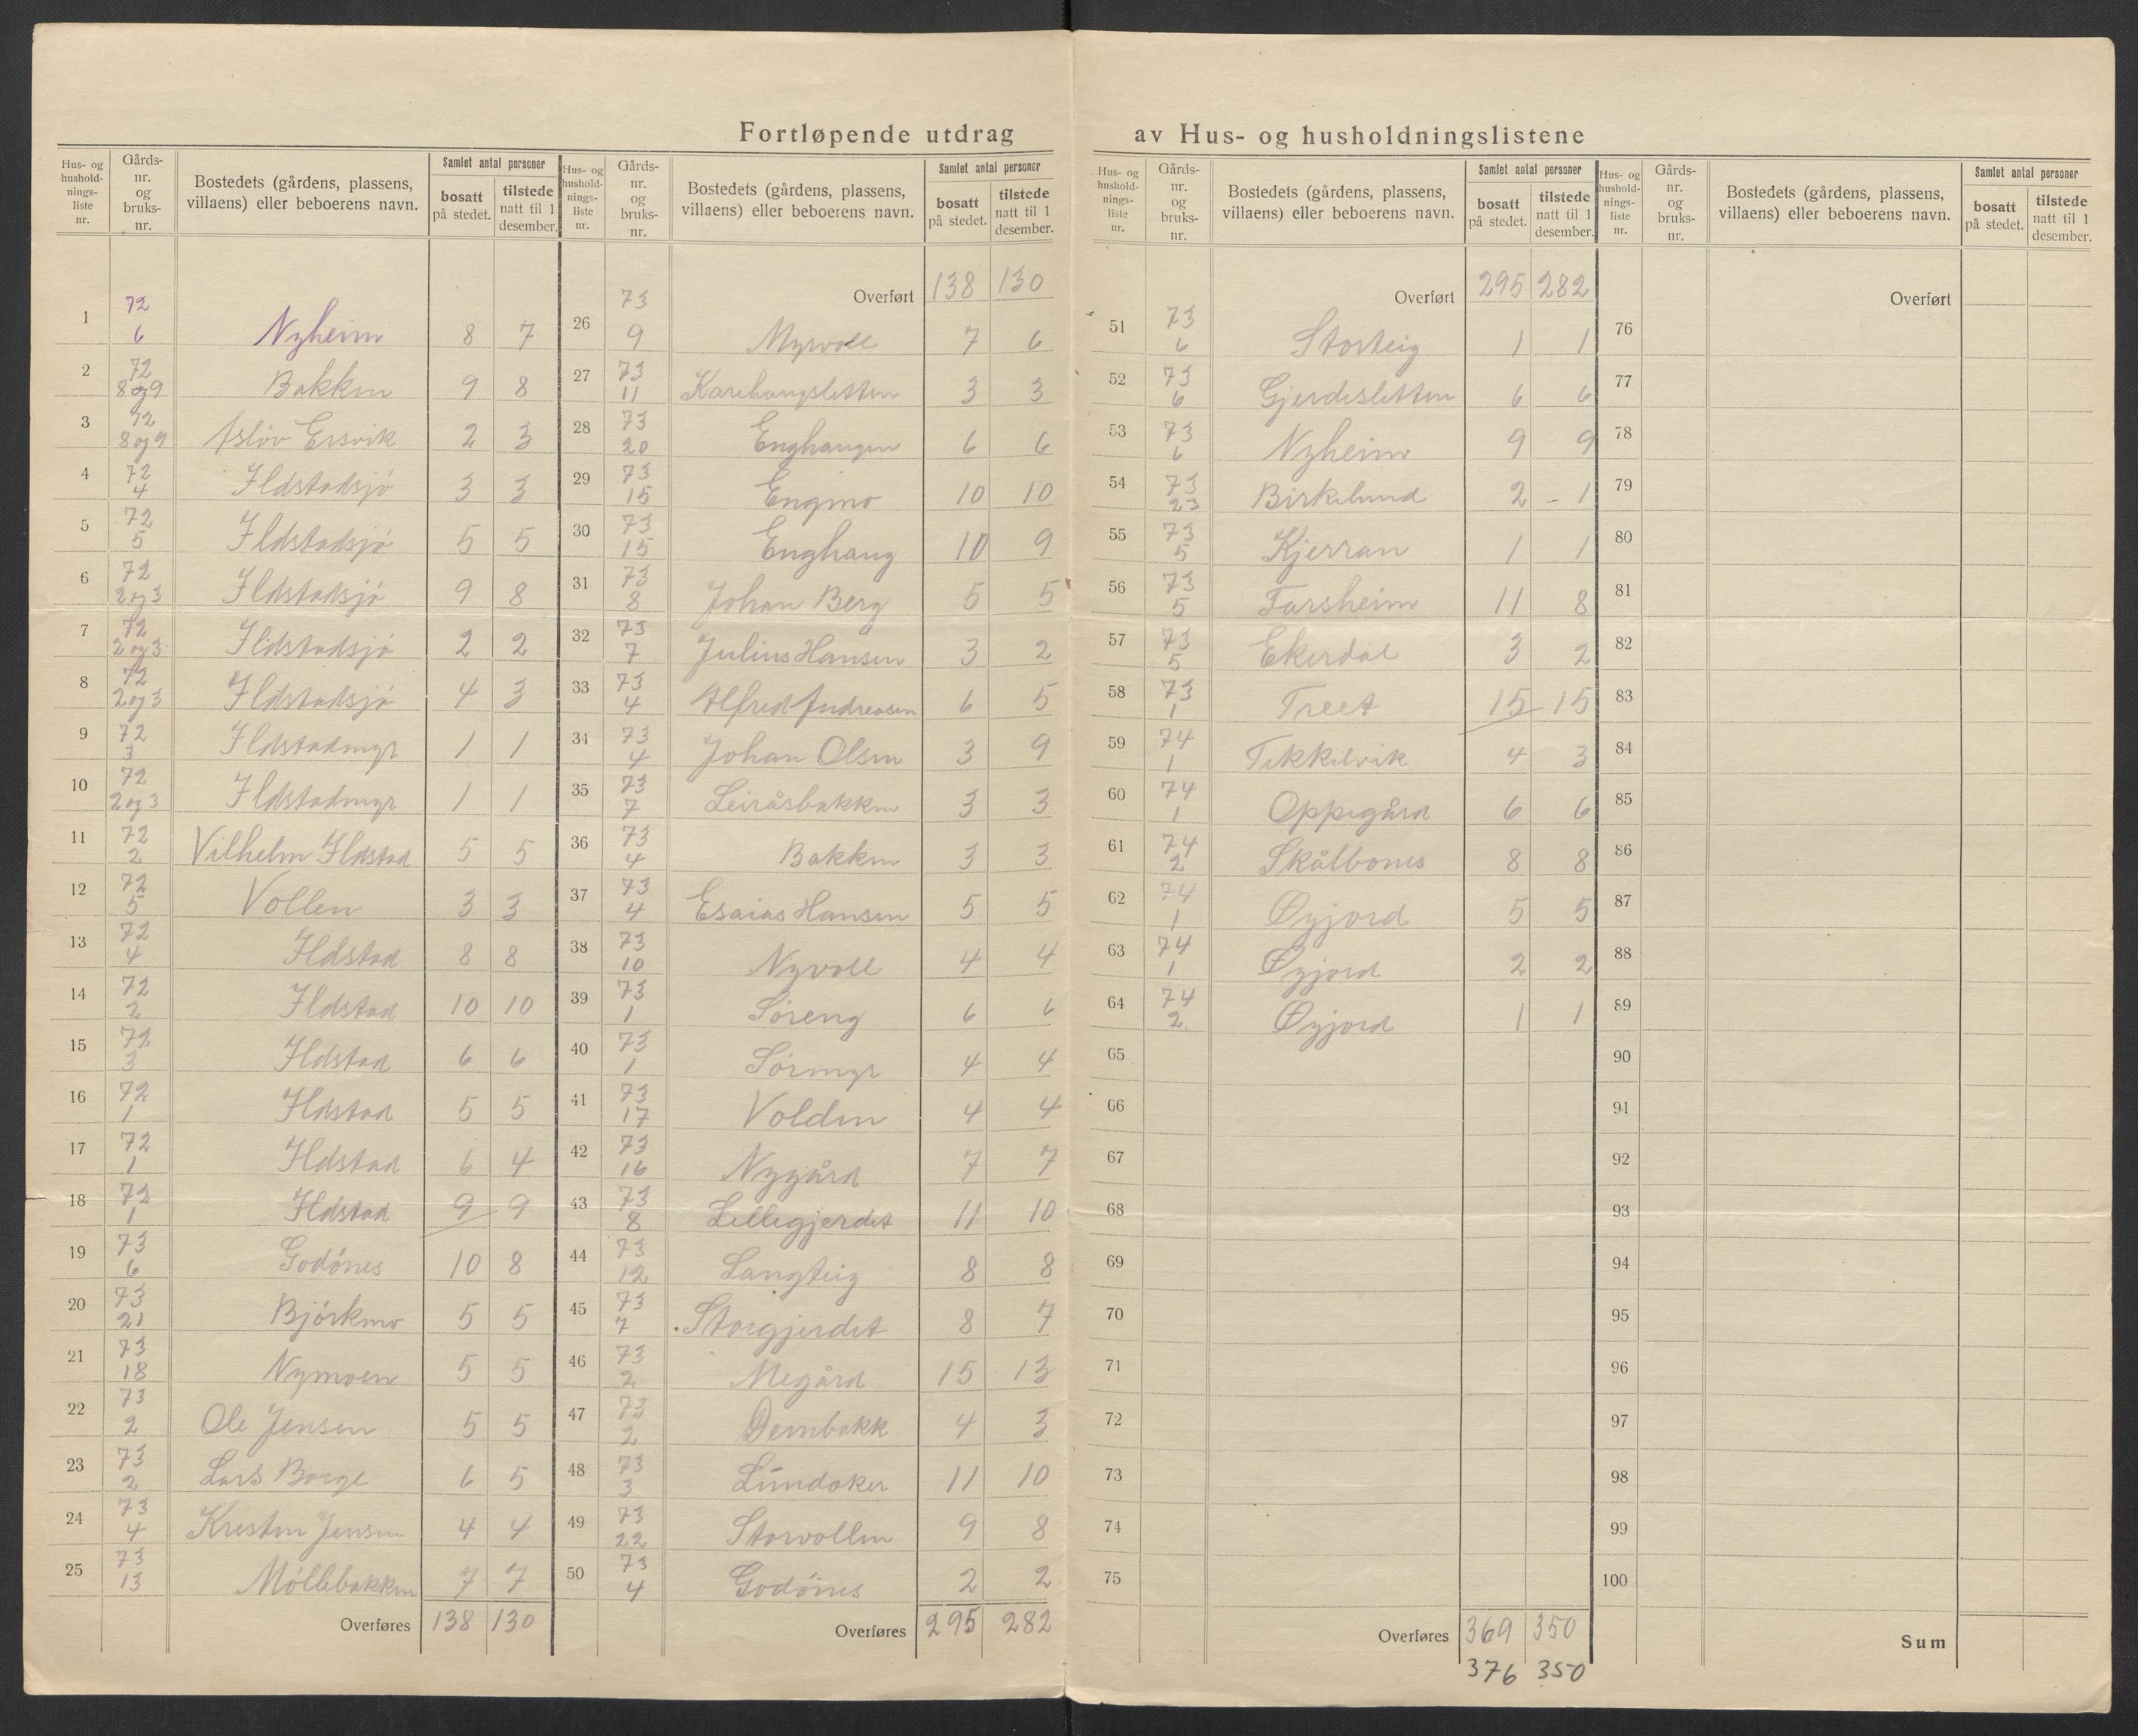 Fortløpende utdrag av Hus- og husholdningslistene
Hus- og husholdningsliste nr. | Gårds-nr. og bruks-nr. | Bostedets (gårdens, plassens, villaens) eller beboerens navn. | Samlet antal personer bosatt på stedet. | tilstede natt til 1 desember.
1 | 72 6 | Nyheim | 8 | 7
2 | 72 8 og 9 | Bakken | 9 | 8
3 | 72 8 og 9 | Asløv Ersvik | 2 | 3
4 | 72 4 | Ildstadsjø | 3 | 3
5 | 72 5 | Ildstadsjø | 5 | 5
6 | 72 2 og 3 | Ildstadsjø | 9 | 8
7 | 72 2 og 3 | Ildstadsjø | 2 | 2
8 | 72 2 og 3 | Ildstadsjø | 4 | 3
9 | 72 3 | Ildstadmyr | 1 | 1
10 | 72 2 og 3 | Ildstadmyr | 1 | 1
11 | 72 2 | Vilhelm Ildstad | 5 | 5
12 | 72 5 | Vollen | 3 | 3
13 | 72 4 | Ildstad | 8 | 8
14 | 72 2 | Ildstad | 10 | 10
15 | 72 3 | Ildstad | 6 | 6
16 | 72 1 | Ildstad | 5 | 5
17 | 72 1 | Ildstad | 6 | 4
18 | 72 1 | Ildstad | 9 | 9
19 | 73 6 | Godønes | 10 | 8
20 | 73 21 | Bjørkmo | 5 | 5
21 | 73 18 | Nymoen | 5 | 5
22 | 73 2 | Ole Jensen | 5 | 5
23 | 73 2 | Lars Borge | 6 | 5
24 | 73 4 | Kresten Jensen | 4 | 4
25 | 73 13 | Møllebakken | 7 | 7
Overføres 138 | 130
Hus- og husholdningsliste nr. | Gårds-nr. og bruks-nr. | Bostedets (gårdens, plassens, villaens) eller beboerens navn. | Samlet antal personer bosatt på stedet. | tilstede natt til 1 desember.
Overført 138 | 130
26 | 73 9 | Myrvoll | 7 | 6
27 | 73 11 | Karihaugsletten | 3 | 3
28 | 73 20 | Enghaugen | 6 | 6
29 | 73 15 | Engmo | 10 | 10
30 | 73 15 | Enghaug | 10 | 9
31 | 73 8 | Johan Berg | 5 | 5
32 | 73 7 | Julius Hansen | 3 | 2
33 | 73 4 | Alfred Andreasen | 6 | 5
34 | 73 4 | Johan Olsen | 3 | 9
35 | 73 7 | Leiråsbakken | 3 | 3
36 | 73 4 | Bakken | 3 | 3
37 | 73 4 | Esaias Hansen | 5 | 5
38 | 73 10 | Nyvoll | 4 | 4
39 | 73 1 | Søreng | 6 | 6
40 | 73 1 | Sørmyr | 4 | 4
41 | 73 17 | Volden | 4 | 4
42 | 73 16 | Nygård | 7 | 7
43 | 73 8 | Lillegjerdet | 11 | 10
44 | 73 12 | Langteig | 8 | 8
45 | 73 7 | Storgjerdet | 8 | 7
46 | 73 2 | Megård | 15 | 13
47 | 73 2 | Dembakk | 4 | 3
48 | 73 3 | Lundaker | 11 | 10
49 | 73 22 | Storvollen | 9 | 8
50 | 73 4 | Godønes | 2 | 2
Overføres 295 | 282
Hus- og husholdningsliste nr. | Gårds-nr. og bruks-nr. | Bostedets (gårdens, plassens, villaens) eller beboerens navn. | Samlet antal personer bosatt på stedet. | tilstede natt til 1 desember.
Overført 295 | 282
51 | 73 6 | Storteig | 1 | 1
52 | 73 6 | Gjerdesletten | 6 | 6
53 | 73 6 | Nyheim | 9 | 9
54 | 73 23 | Birkelund | 2 - 1
55 | 73 5 | Kjerran | 1 | 1
56 | 73 5 | Farsheim | 11 | 8
57 | 73 5 | Ekerdal | 3 | 2
58 | 73 1 | Treet | 15 | 15
59 | 74 1 | Tikkelvik | 4 | 3
60 | 74 1 | Oppegård | 6 | 6
61 | 74 2 | Skålbones | 8 | 8
62 | 74 1 | Øyjord | 5 | 5
63 | 74 1 | Øyjord | 2 | 2
64 | 74 2 | Øyjord | 1 | 1
65
66
67
68
69
70
71
72
73
74
75
Overføres 369 | 350
376 350
Hus- og husholdningsliste nr. | Gårds-nr. og bruks-nr. | Bostedets (gårdens, plassens, villaens) eller beboerens navn. | Samlet antal personer bosatt på stedet. | tilstede natt til 1 desember.
Overført
76
77
78
79
80
81
82
83
84
85
86
87
88
89
90
91
92
93
94
95
96
97
98
99
100
Sum